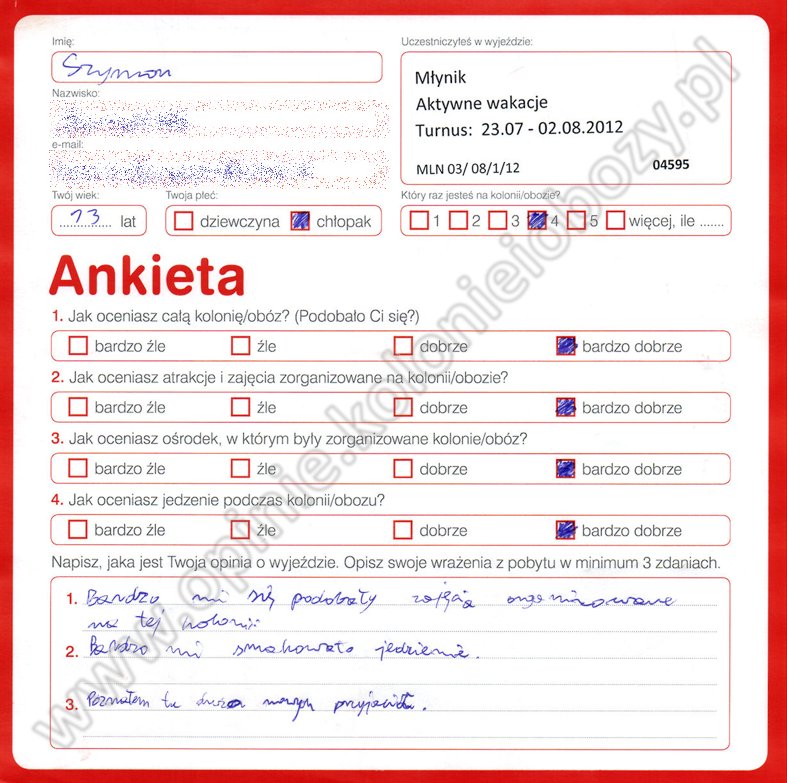 Imię:
Szymon
Uczestniczyłeś w wyjeździe:
Młynik
Aktywne wakacje
Turnus: 23.07 - 02.08.2012
MLN 03/ 08/1/12 04595
Nazwisko:
e-mail:
Twój wiek:
13 lat
Twoja płeć:
dziewczyna chłopak
Który raz jesteś na kolonii/obozie?
1 2 3 4 5 więcej, ile .......
Ankieta
1. Jak oceniasz całą kolonię/obóz? (Podobało Ci się?)
bardzo źle źle dobrze bardzo dobrze
2. Jak oceniasz atrakcje i zajęcia zorganizowane na kolonii/obozie?
bardzo źle źle dobrze bardzo dobrze
3. Jak oceniasz ośrodek, w którym były zorganizowane kolonie/obóz?
bardzo źle źle dobrze bardzo dobrze
4. Jak oceniasz jedzenie podczas kolonii/obozu?
bardzo źle źle dobrze bardzo dobrze
Napisz, jaka jest Twoja opinia o wyjeździe. Opisz swoje wrażenia z pobytu w minimum 3 zdaniach.
1. Bardzo mi się podobały zajęcia organizowane
na tej kolonii
2. Bardzo mi smakowało jedzienie.
3. Poznałem tu dużo nowych przyjaciół.
www.opinie.kolonieiobozy.pl